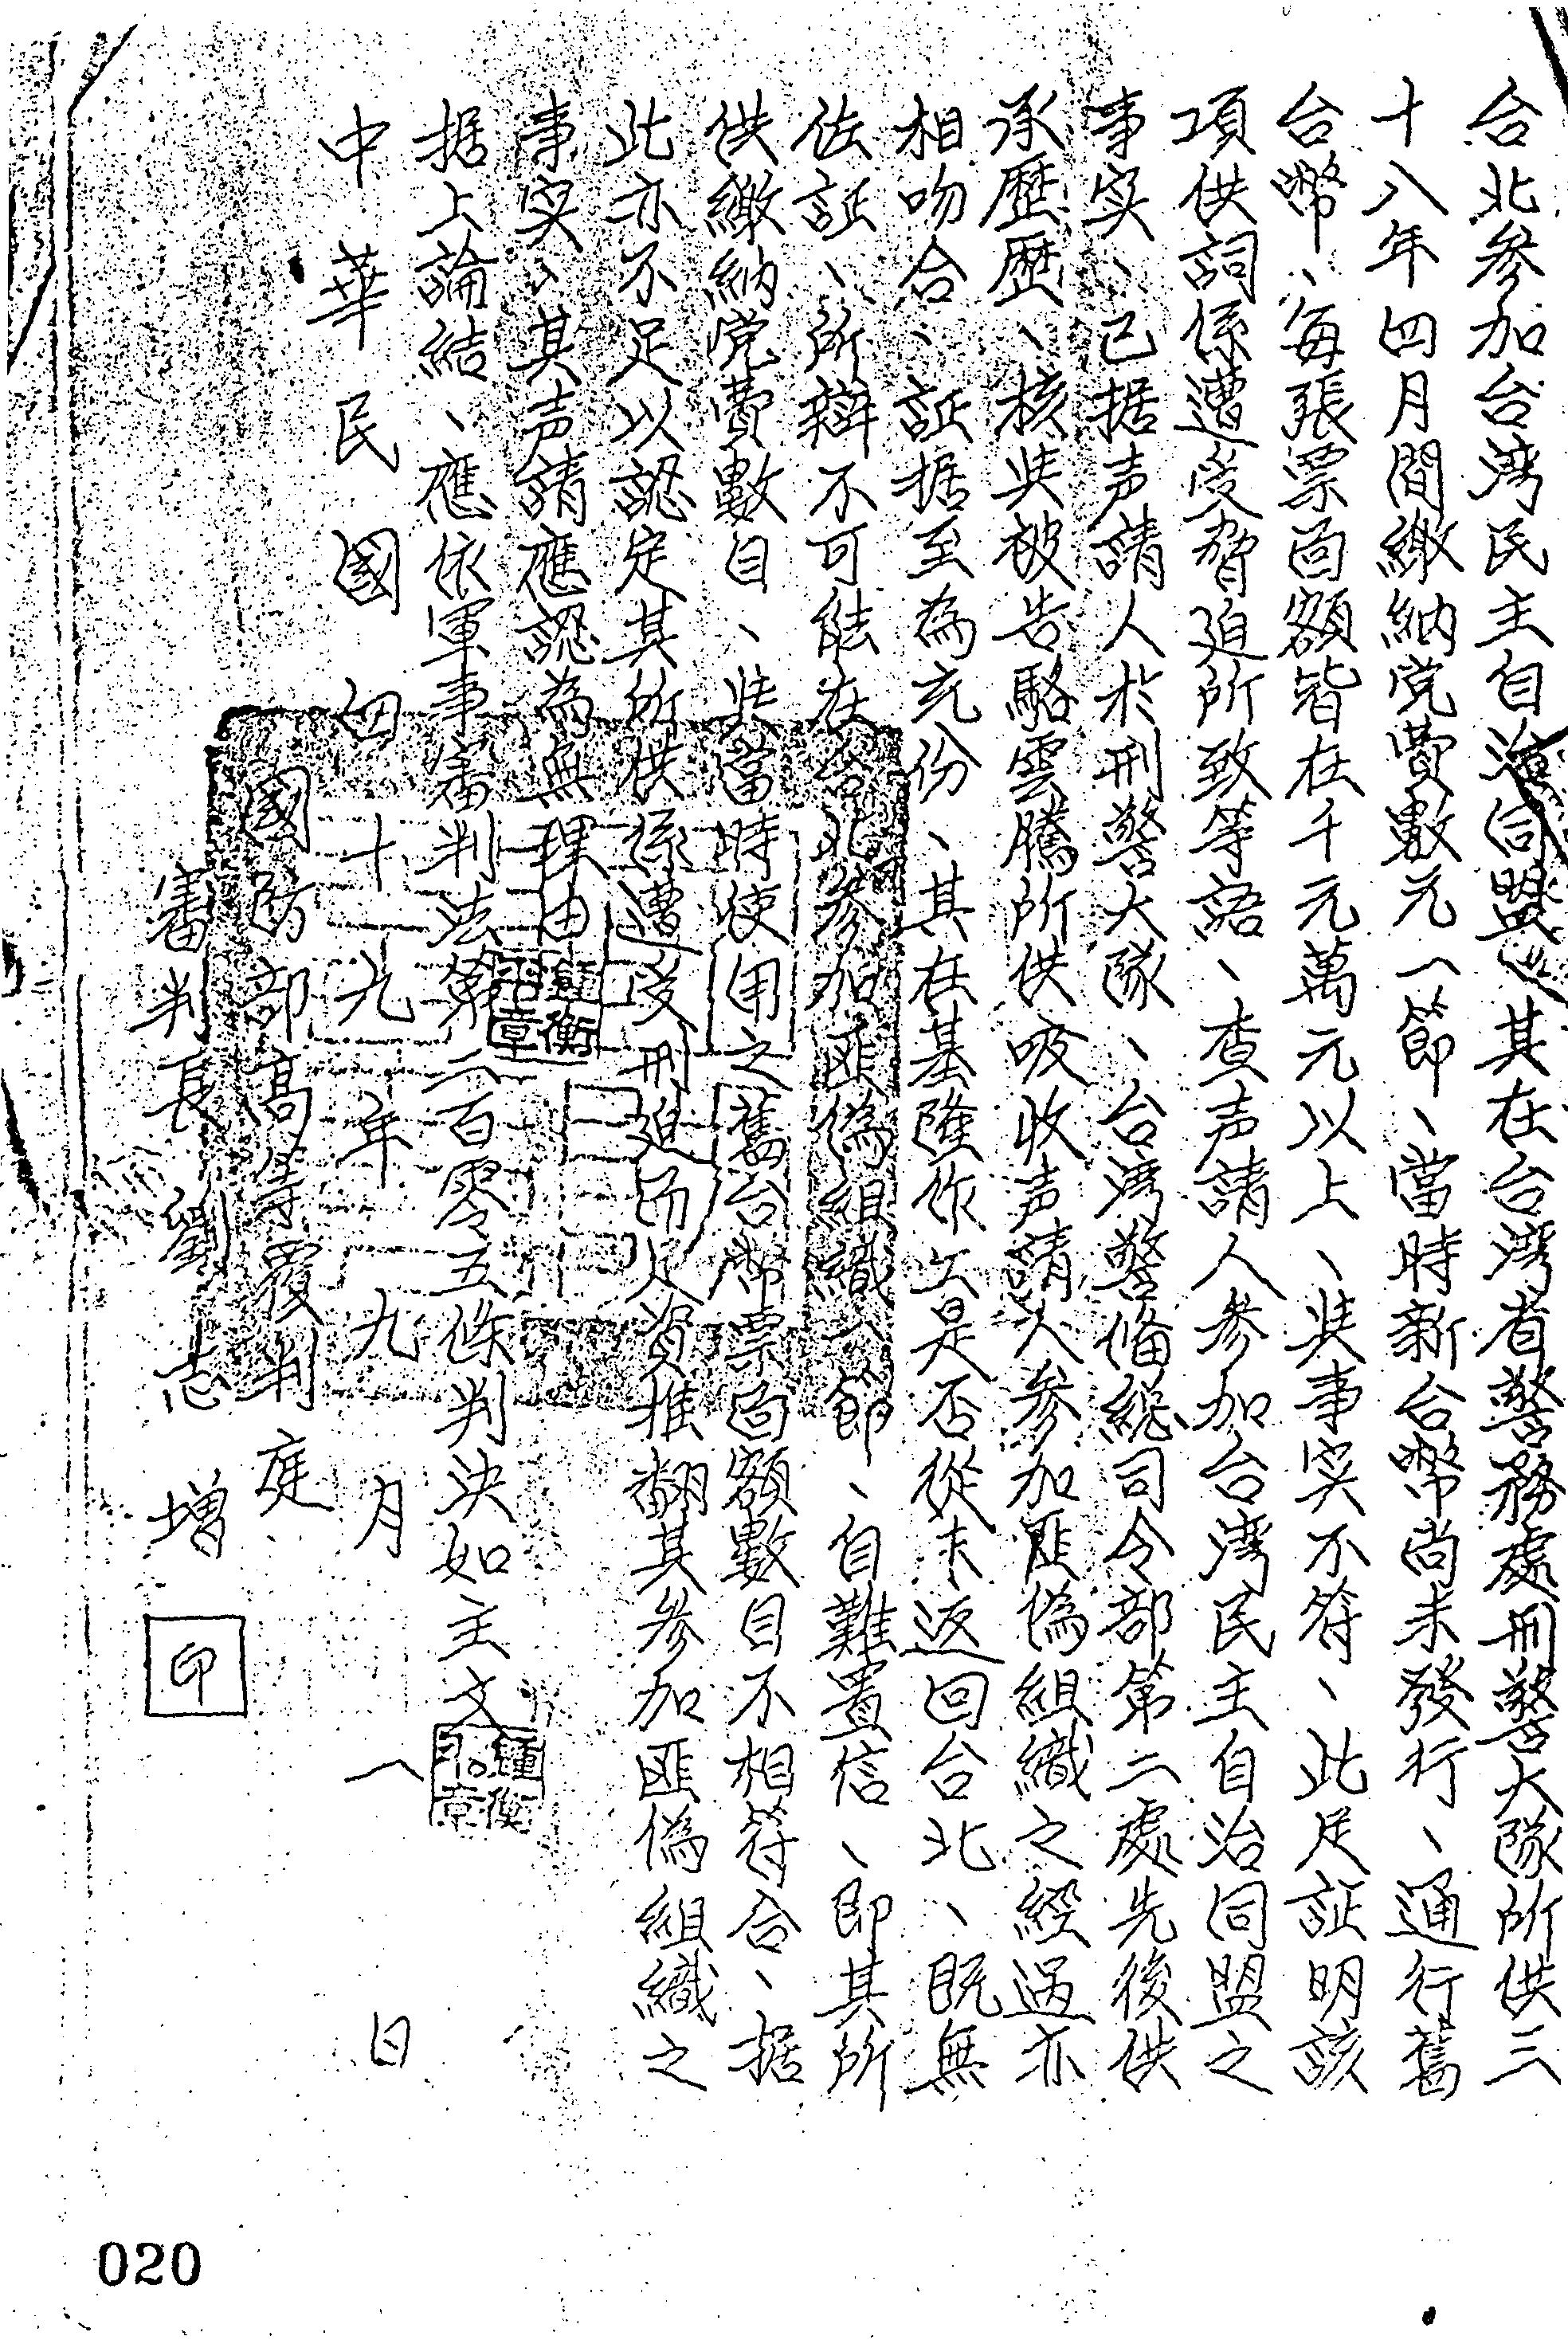 台北參加台湾民主自治同盟、其在台湾省警務處刑警大隊所供三
十八年四月間繳納党費數元一節、當時新台幣尚未發行、通行舊
台幣、每張票面額皆在千元萬元以上、與事实不符、此足証明該
項供詞係遭受脅迫所致等語、查声請人參加台湾民主自治同盟之
事实、已据声請人於刑警大隊、台湾警俻総司令部第二處先後供
承歷歷、核與被告駱雲騰所供吸收声請人參加匪偽組織之經过亦
相吻合、証据至為充份、其在基隆作工是否從未返回台北、既無
佐証、所辯不可能在台北參加匪偽組織一節、自難置信、即其所
供繳納党費數目、與當時使用之舊台幣票面額數目不相符合、据
此亦不足以認定其所供係遭受刑迫而足資推翻其參加匪偽組織之
事实、其声請應認為無理由
据上論結、應依軍事審判法第二百零五條判決如主文
中華民國四十九年九月一日
國防部高等覆判庭
審判長劉志增
印
020